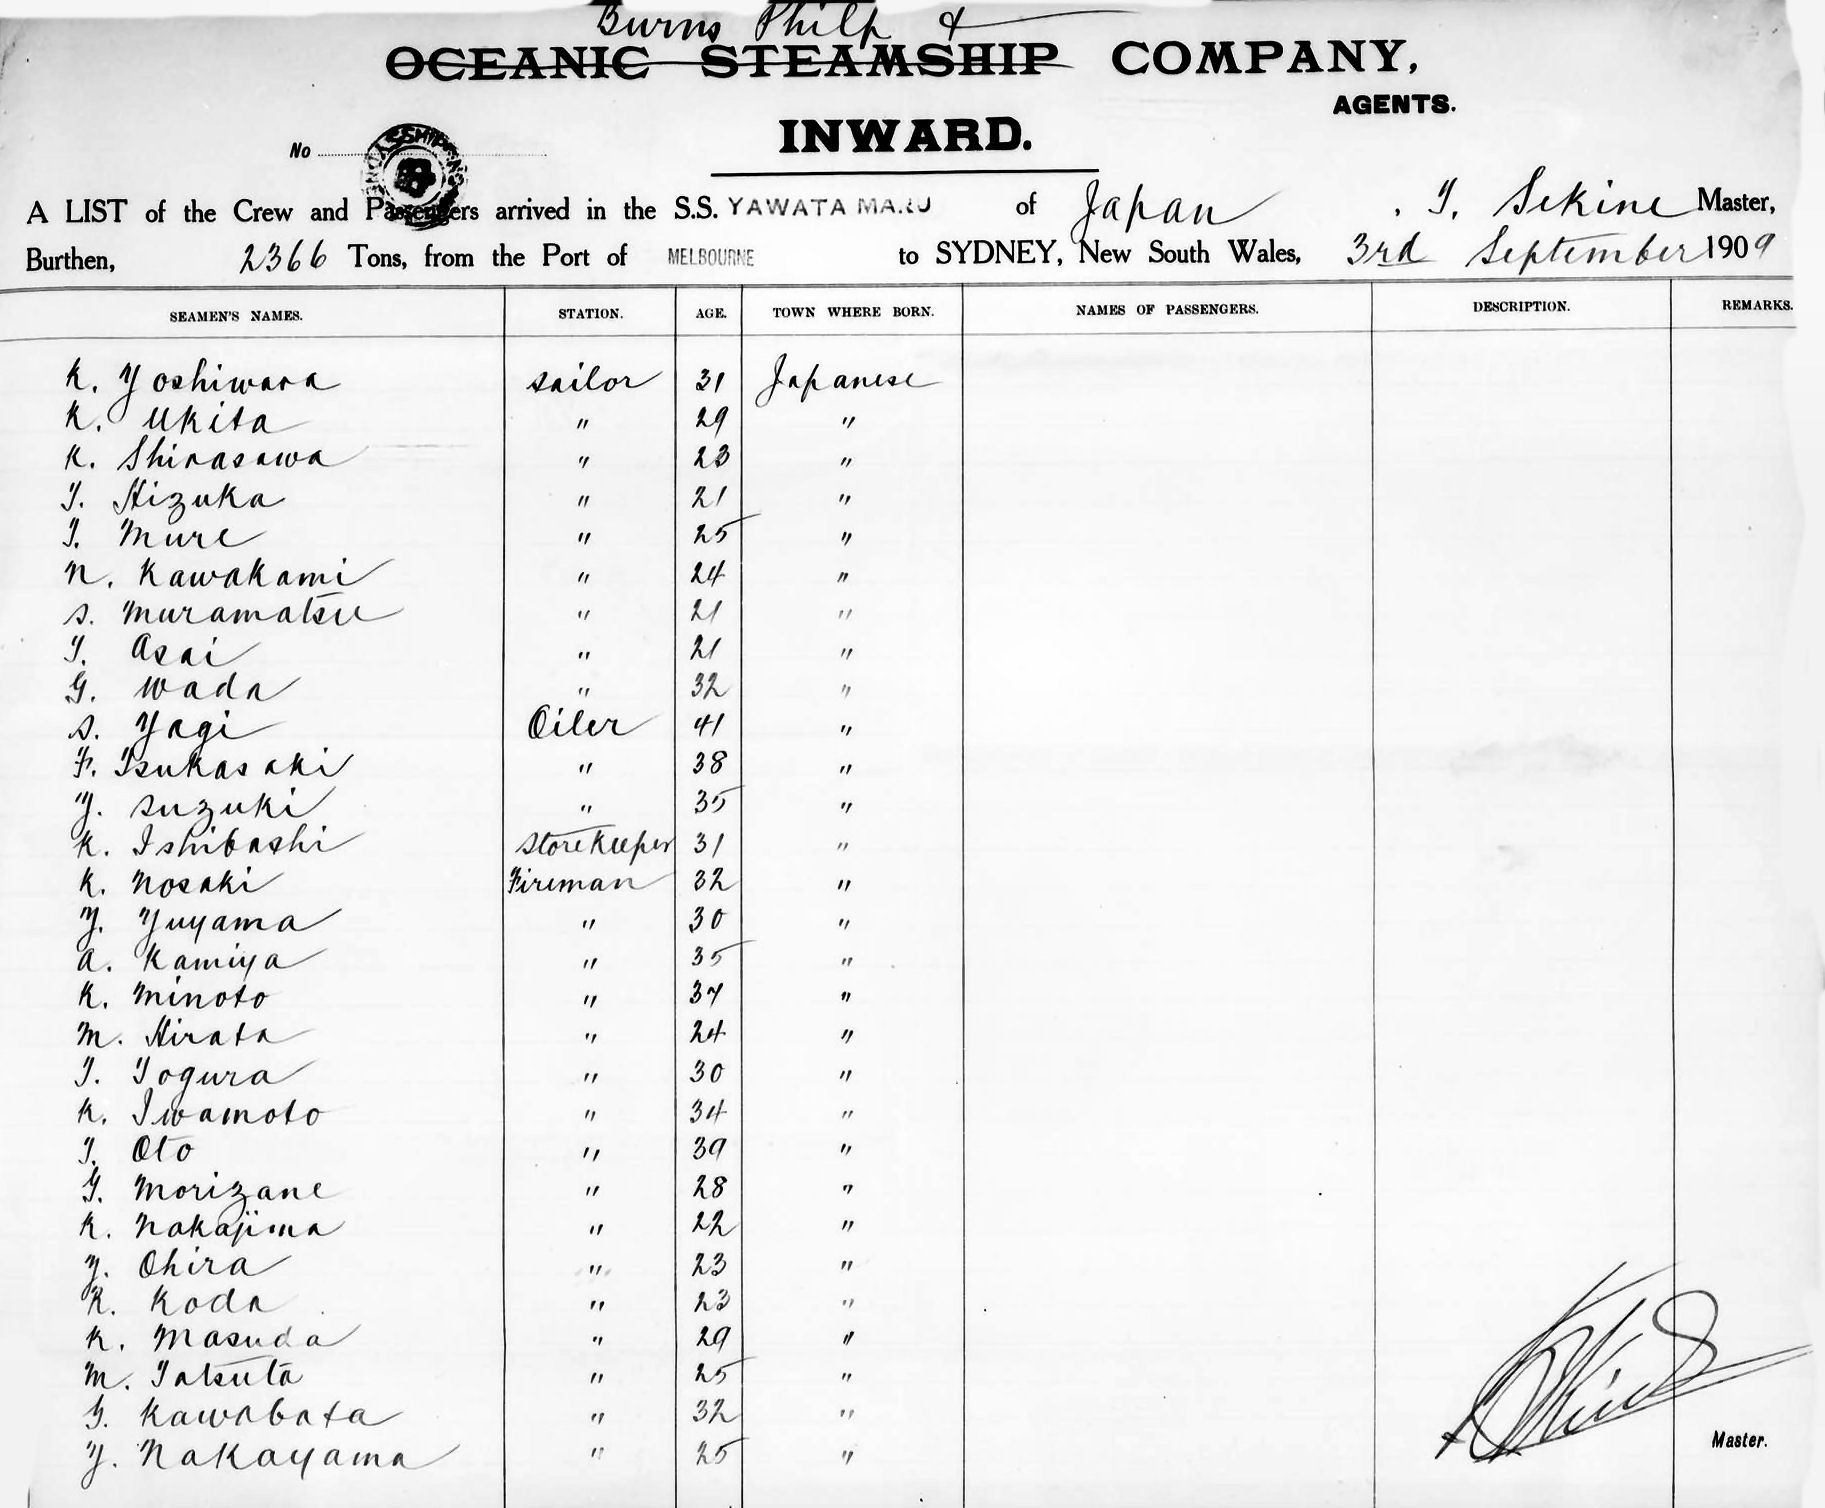 Burns Philp &
OCEANIC STEAMSHIP COMPANY,
AGENTS.
INWARD.
No
A LIST of the Crew and Passengers arrived in the S.S. YAWATA MARU of Japan . T. Sekine Master,
Burthen, 2366 Tons, from the Port of MELBOURNE to SYDNEY, New South Wales, 3rd September 1909
SEAMEN'S NAMES. STATION. AGE. TOWN WHERE BORN. NAMES OF PASSENGERS. DESCRIPTION. REMARKS.
K. Yoshiwara sailor 31 Japanese
K. Ukita " 29 "
K. Shirasawa " 23 "
T. Hizuka " 21 "
T. Mure " 25 "
N. Kawakami " 24 "
S. Muramatsu " 21 "
T. Asai " 21 "
G. Wada " 32 "
S. Yagi Oiler 41 "
F. Tsukasaki " 38 "
Y. Suzuki " 35 "
K. Ishibashi Storekeeper 31 "
K. Nosaki Fireman 32 "
Y. Yuyama " 30 "
A. Kamiya " 35 "
K. Minoto " 37 "
M. Hirata " 24 "
T. Togura " 30 "
K. Iwamoto " 34 "
T. Oto " 39 "
G. Morizane " 28 "
K. Nakajima " 22 "
Y. Ohira " 23 "
K. Koda " 23 "
K. Masuda " 29 "
M. Tatsuta " 25 "
G. Kawabata " 32 "
Y. Nakayama " 25 "
Master.